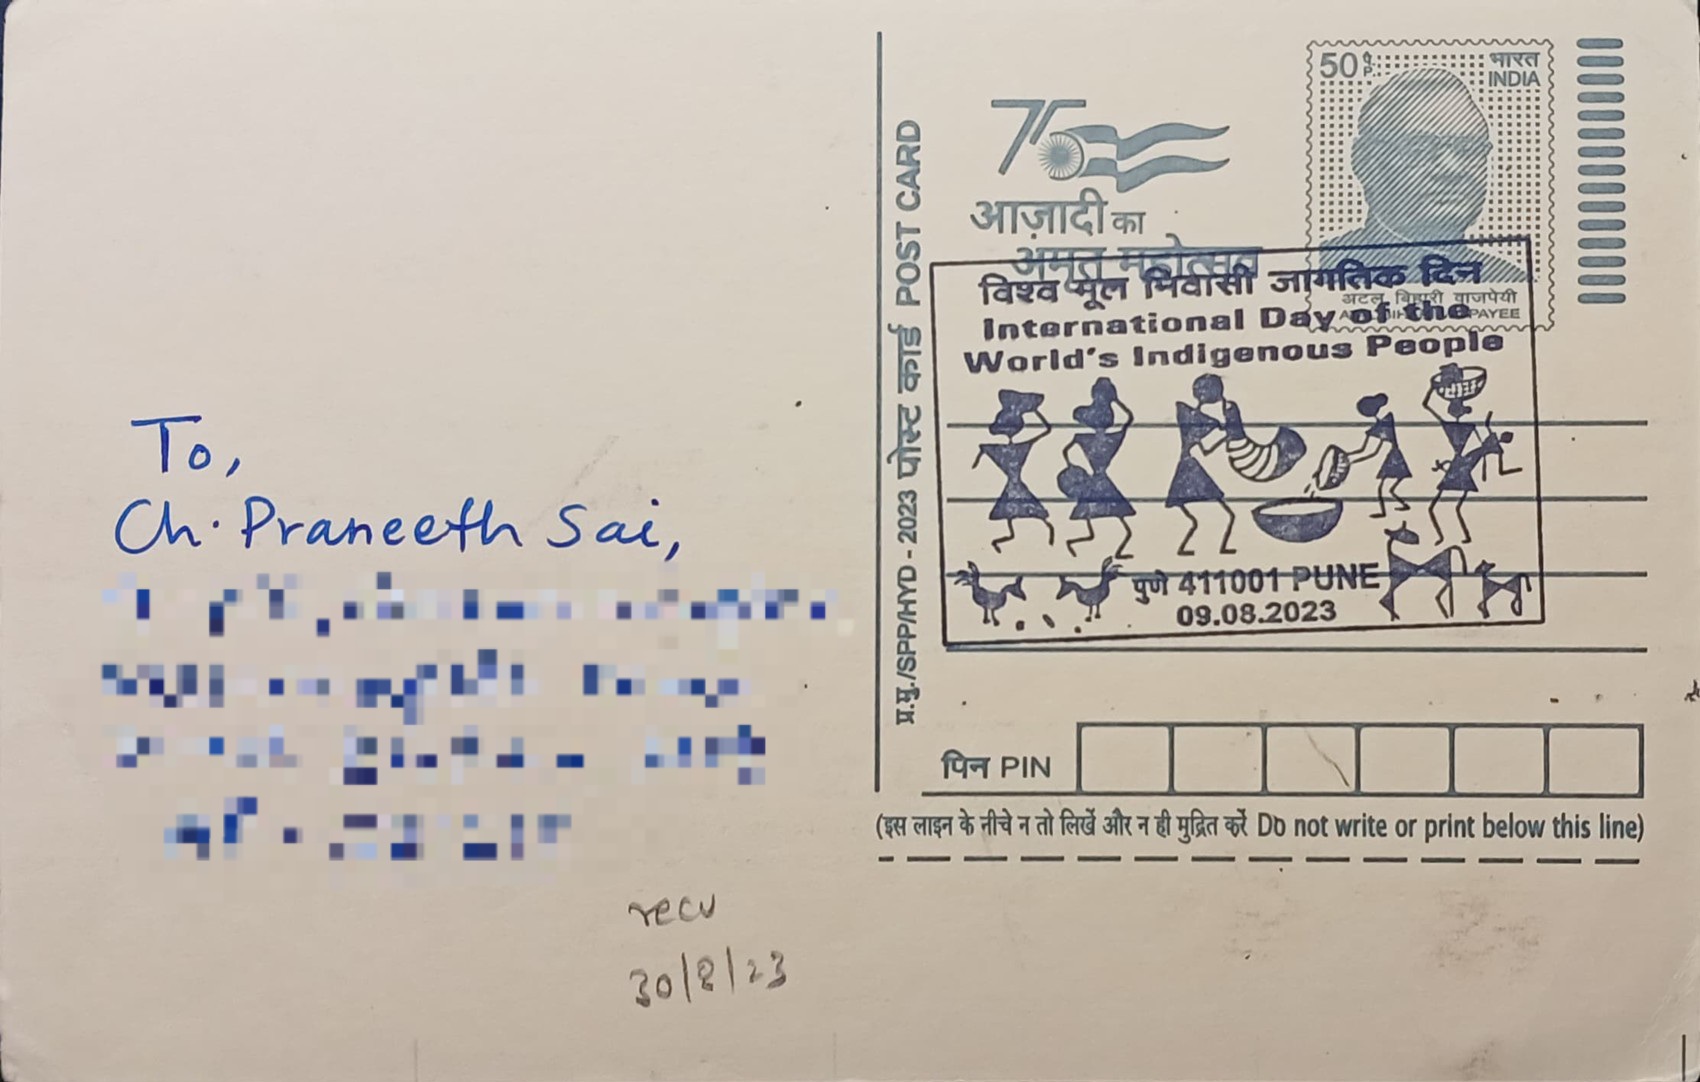 To,
Ch. Praneeth Sai,
recv
30/8/23
प्र.मु./SPP/HYD - 2023 पोस्ट कार्ड POST CARD
75
आज़ादी का
अमृत महोत्सव
50 पै. P.
भारत
INDIA
अटल बिहारी वाजपेयी
विश्व मूल निवासी जागतिक दिन
International Day of the
World's Indigenous People
पुणे 411001 PUNE
09.08.2023
पिन PIN
(इस लाइन के नीचे न तो लिखें और न ही मुद्रित करें Do not write or print below this line)